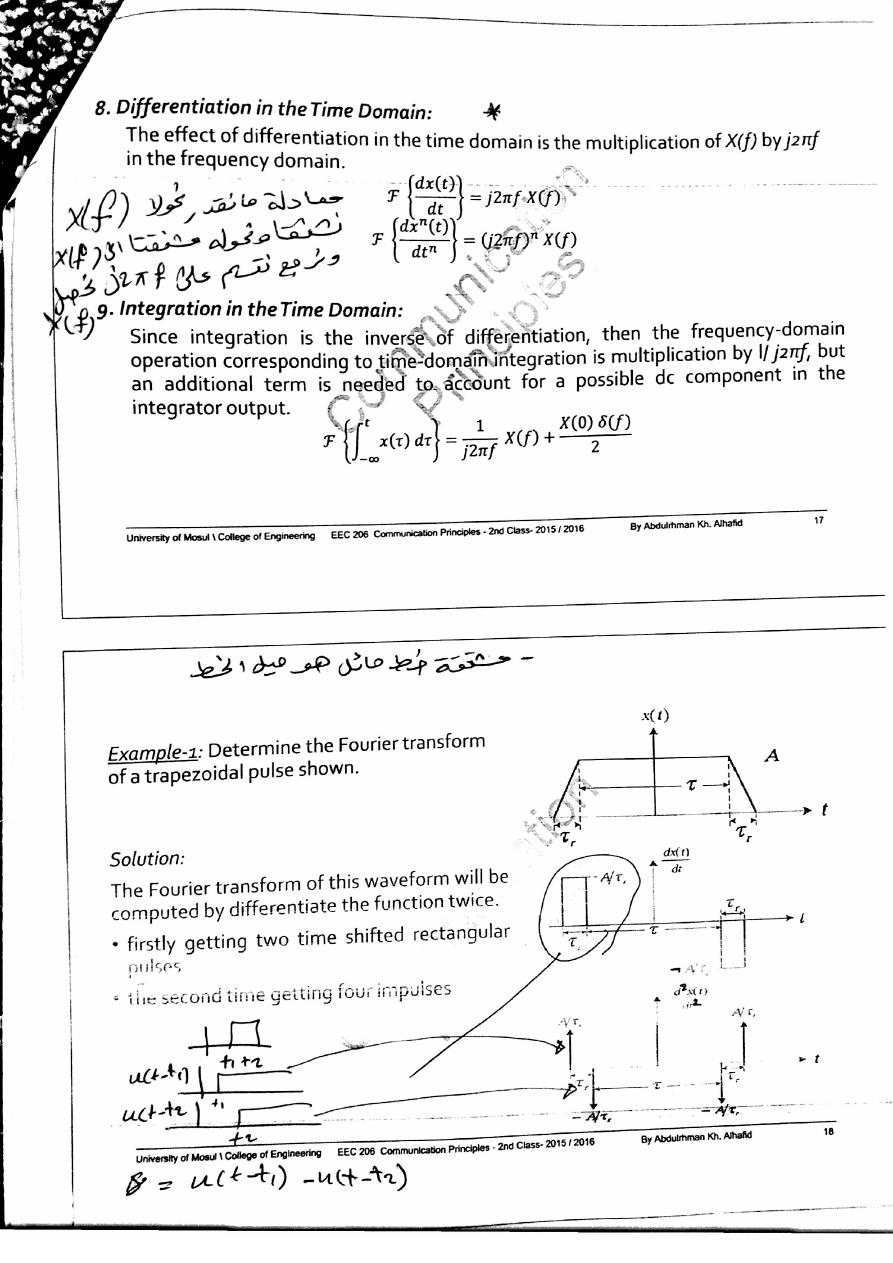 8. Differentiation in the Time Domain: *
The effect of differentiation in the time domain is the multiplication of X(f) by j2πf
in the frequency domain.
ℱ {dx(t)/dt} = j2πf X(f)
ℱ {dxⁿ(t)/dtⁿ} = (j2πf)ⁿ X(f)
X(f)
X(f)
j2πf
X(f)
9. Integration in the Time Domain:
Since integration is the inverse of differentiation, then the frequency-domain
operation corresponding to time-domain integration is multiplication by l/ j2πf, but
an additional term is needed to account for a possible dc component in the
integrator output.
ℱ {∫_{-∞}^{t} x(τ) dτ} = 1/(j2πf) X(f) + X(0) δ(f)/2
Communication
Principles
University of Mosul \ College of Engineering EEC 206 Communication Principles - 2nd Class- 2015 / 2016 By Abdulrhman Kh. Alhafid 17
- مشتقة خط مائل هو ميل الخط
Example-1: Determine the Fourier transform
of a trapezoidal pulse shown.
x(t)
A
τ
t
τr
τr
Solution:
The Fourier transform of this waveform will be
computed by differentiate the function twice.
• firstly getting two time shifted rectangular
pulses
• the second time getting four impulses
dx(t)/dt
A/τr
τr
τ
τr
t
- A/τr
d²x(t)/dt²
A/τr
A/τr
τr
τ
τr
t
- A/τr
- A/τr
t1 t2
u(t-t1)
t1
u(t-t2)
t2
University of Mosul \ College of Engineering EEC 206 Communication Principles - 2nd Class- 2015 / 2016 By Abdulrhman Kh. Alhafid 18
= u(t-t1) - u(t-t2)